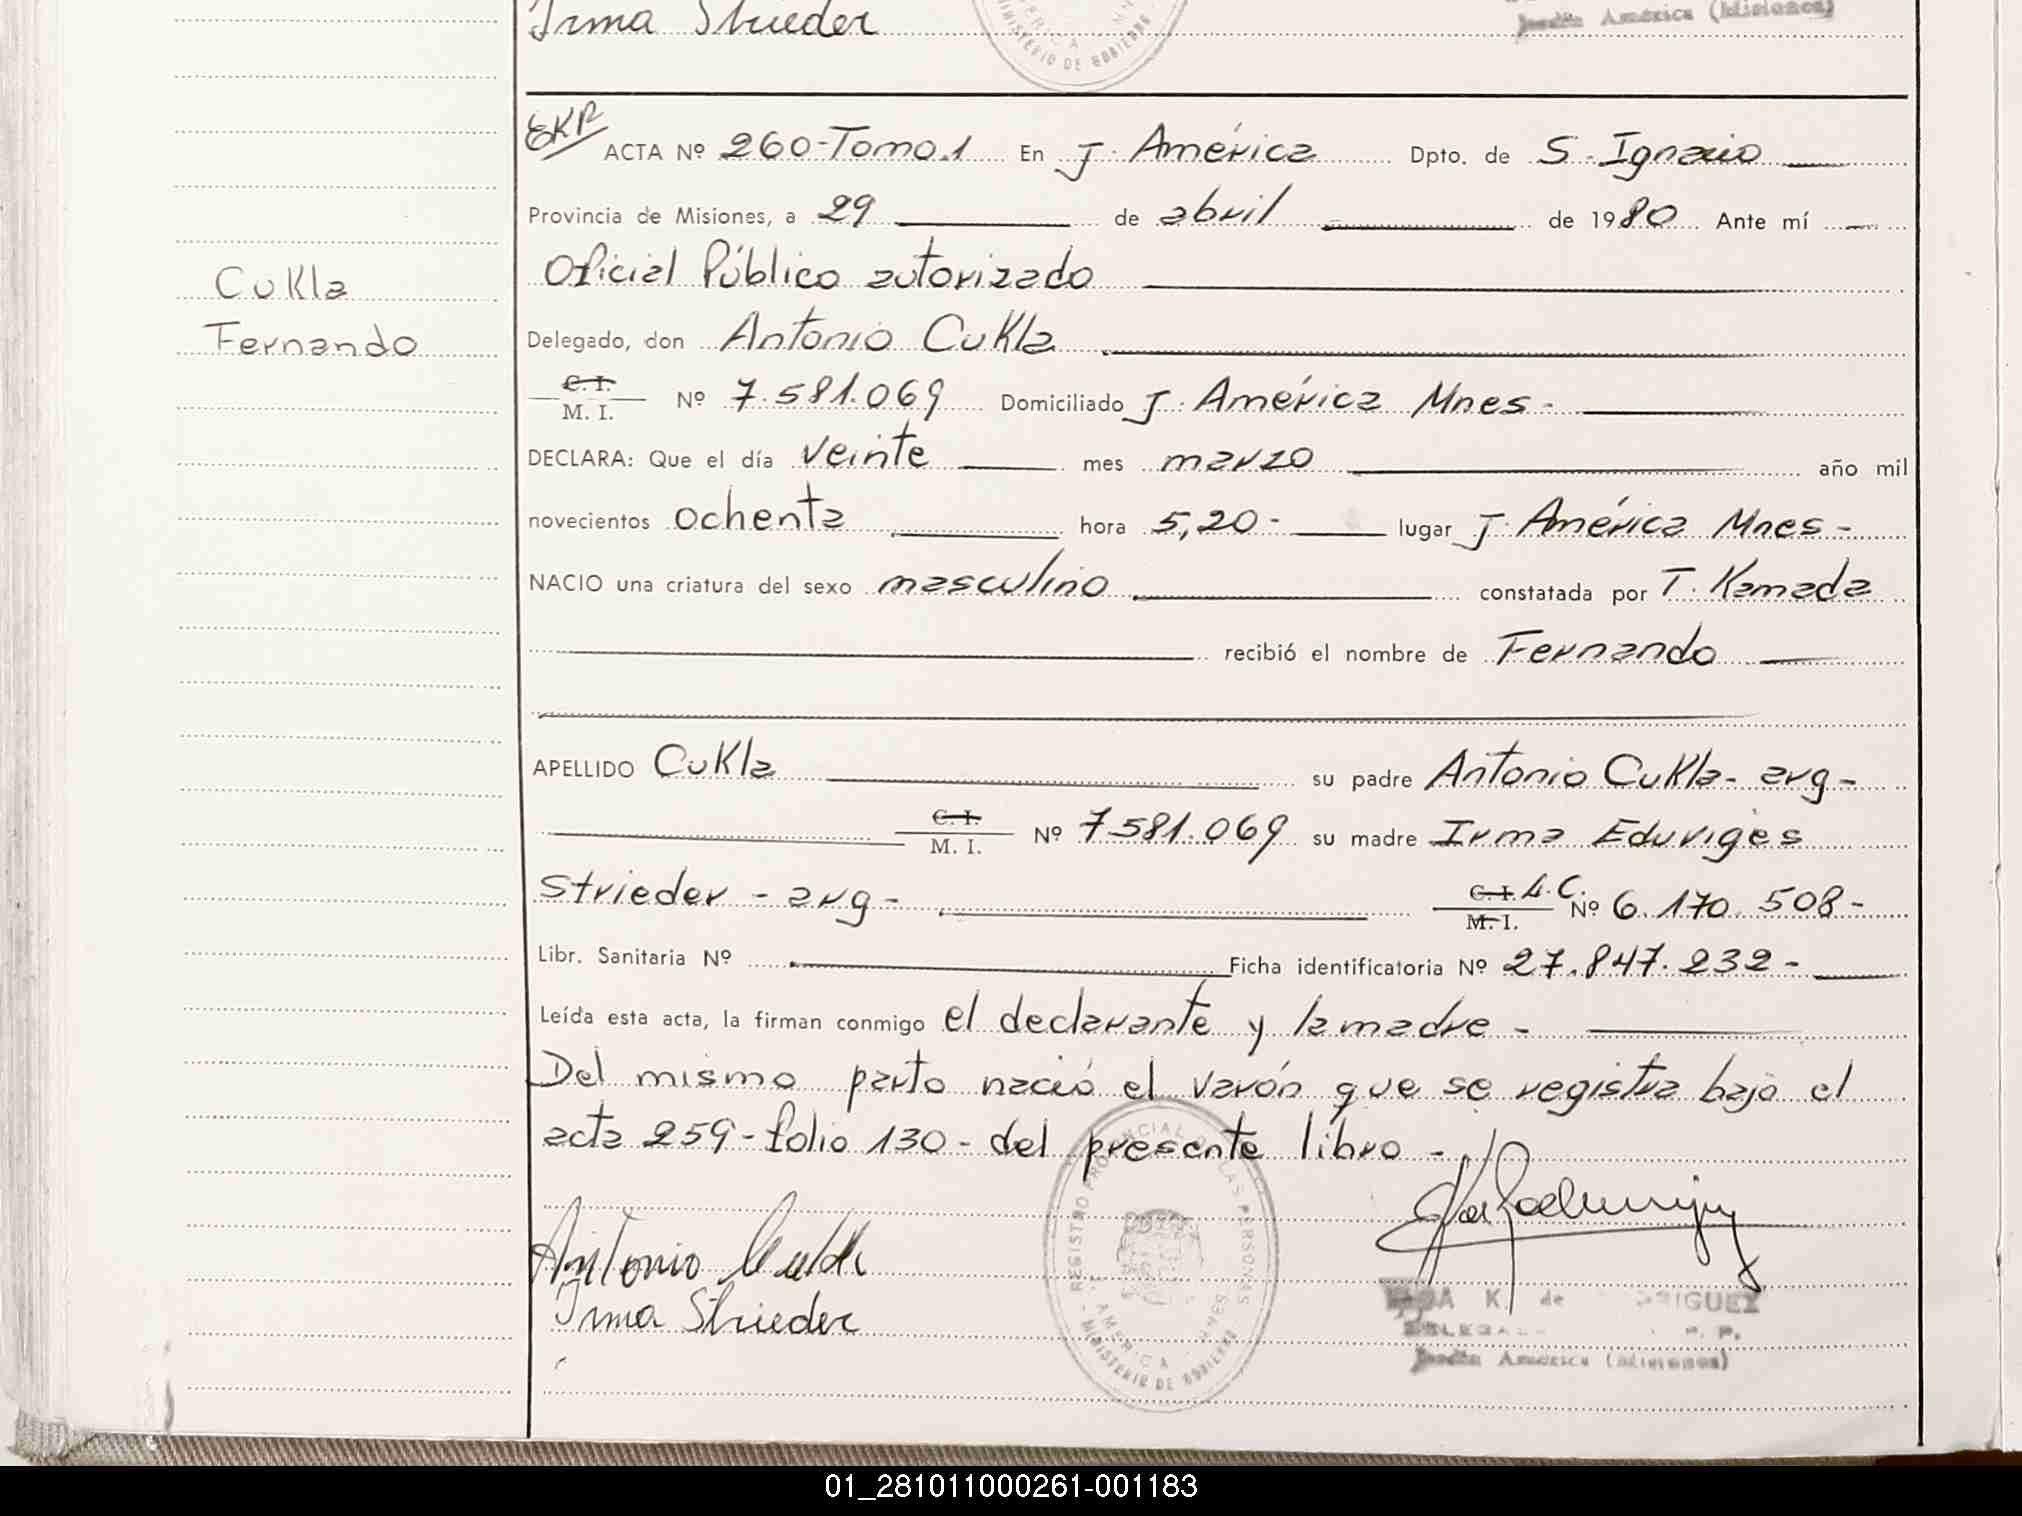 Irma Strieder
MINISTERIO DE GOBIERNO
Jardín América (Misiones)
EKR
ACTA Nº 260-Tomo.1 En J. América Dpto. de S. Ignacio
Provincia de Misiones, a 29 de abril de 1980 Ante mí
Oficial Público autorizado
Cukla
Fernando
Delegado, don Antonio Cukla
C. I.
M. I. Nº 7.581.069 Domiciliado J. América Mnes-
DECLARA: Que el día veinte mes marzo año mil
novecientos ochenta hora 5,20- lugar J. América Mnes-
NACIO una criatura del sexo masculino constatada por T. Kamada
recibió el nombre de Fernando
APELLIDO Cukla su padre Antonio Cukla- arg-
C. I.
M. I. Nº 7.581.069 su madre Irma Eduviges
Strieder - arg- C. I. L.C.
M. I. Nº 6.170.508-
Libr. Sanitaria Nº Ficha identificatoria Nº 27.847.232-
Leída esta acta, la firman conmigo el declarante y la madre-
Del mismo parto nació el varón que se registra bajo el
acta 259-folio 130- del presente libro-
Antonio Cukla
Irma Strieder
REGISTRO PROVINCIAL DE LAS PERSONAS
AMERICA
MINISTERIO DE GOBIERNO
K. de RODRIGUEZ
Jardín América (Misiones)
01_281011000261-001183